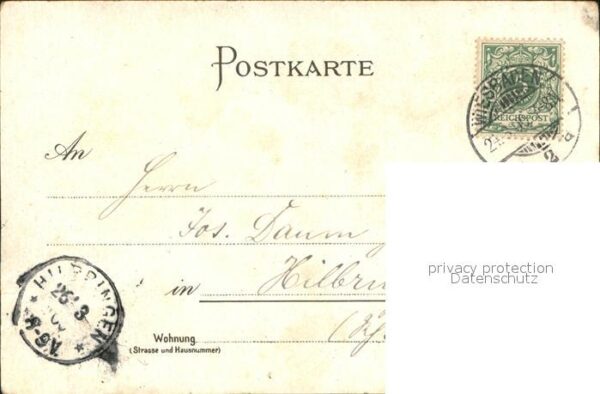 POSTKARTE
REICHSPOST
WIESBADEN
An
Herrn
Jos. Daum
in Hilbri
Wohnung
(Strasse und Hausnummer)
HILBRINGEN
26 3
privacy protection
Datenschutz